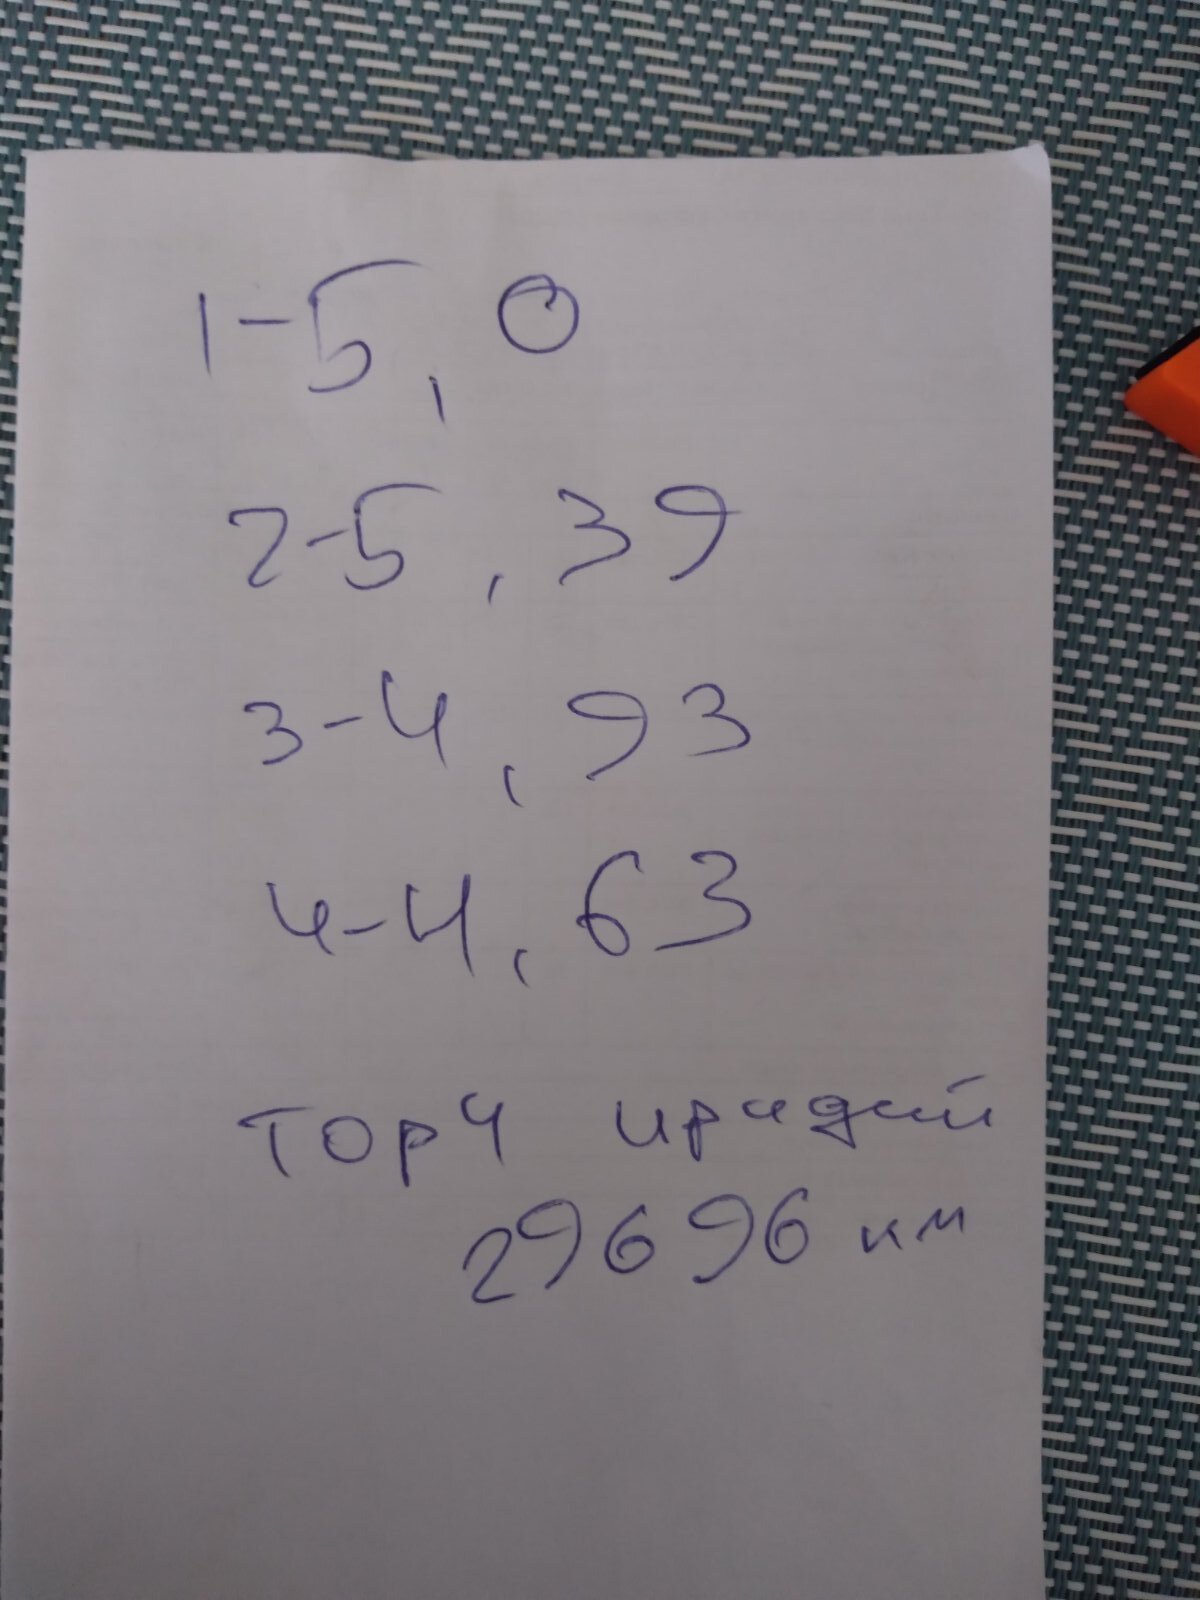 1-5, 0
2-5, 39
3-4, 93
4-4, 63
торч иридий
29696 км